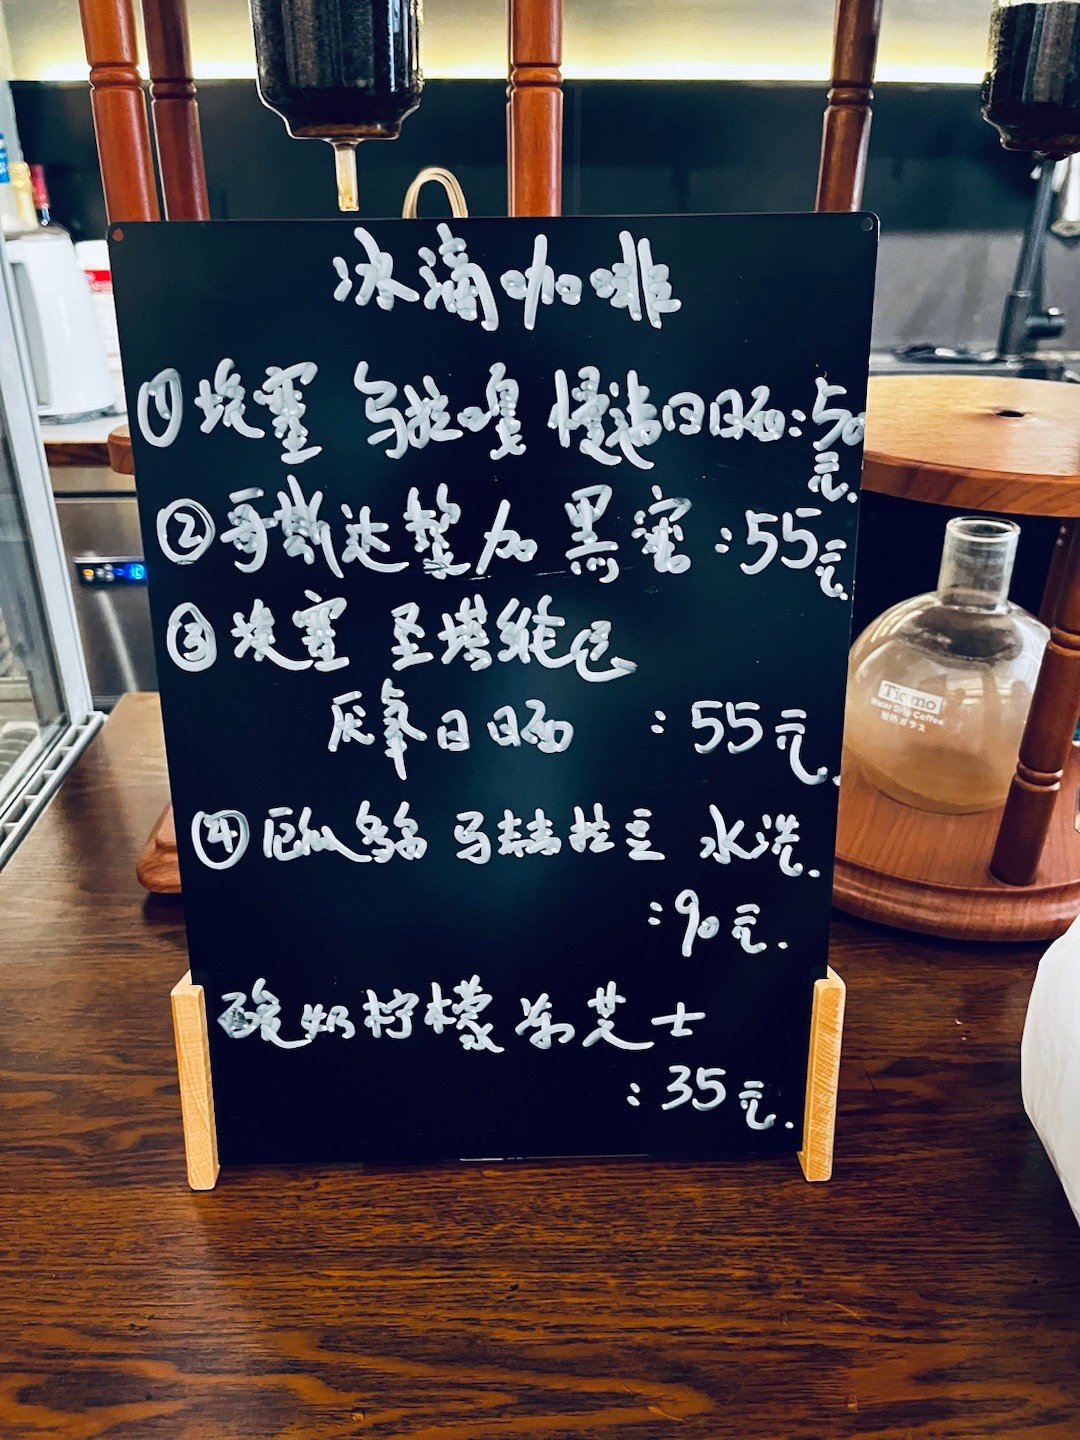 冰滴咖啡
①埃塞 乌拉嘎 慢速日晒:50
元.
②哥斯达黎加 黑蜜:55元.
③埃塞 圣塔维尼
厌氧日晒 :55元.
④厄瓜多尔 马拉拉豆 水洗.
:90元.
酸奶柠檬冻芝士
:35元.
Ticmo
Water Drip Coffee
耐熱ガラス